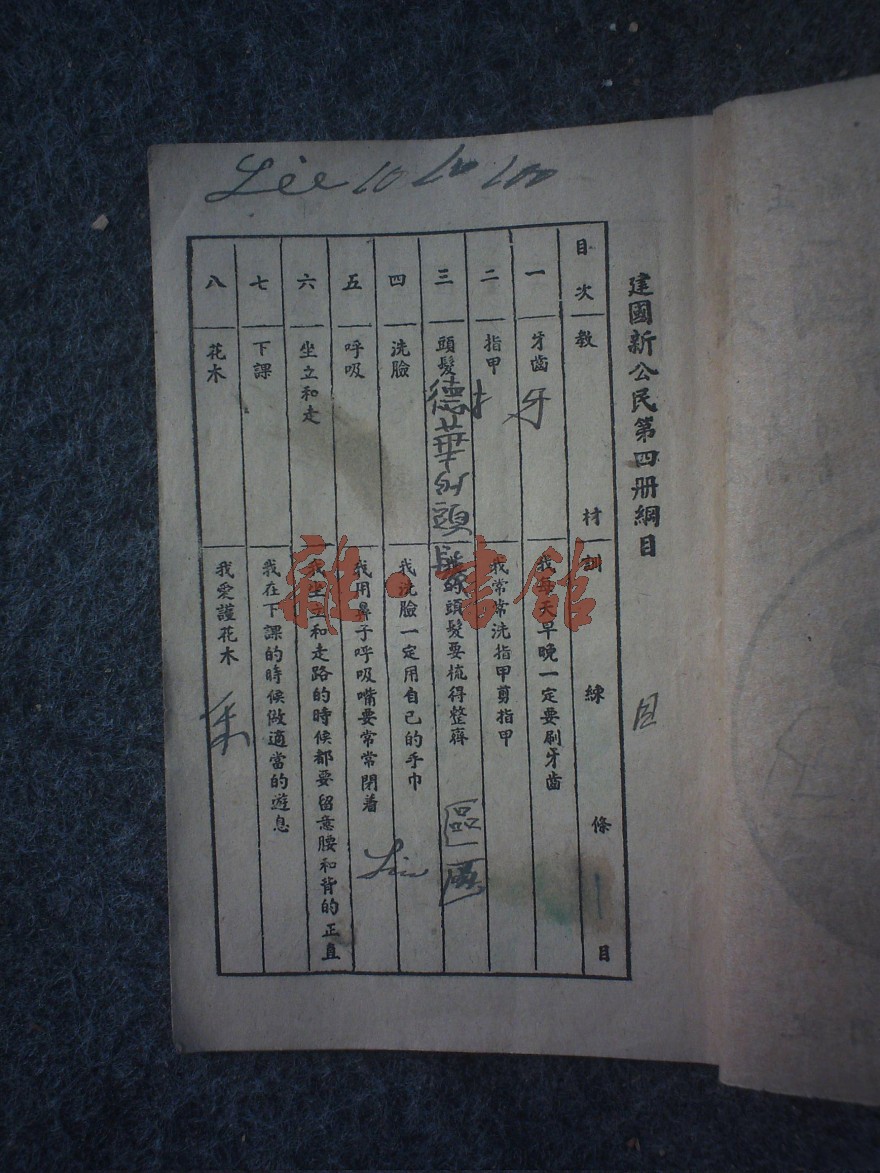 Lee 10 10 100
建國新公民第四册綱目
目次 教材 訓練條目
一 牙齒 我每天早晚一定要刷牙齒
牙
二 指甲 我常常洗指甲剪指甲
三 頭髮 我的頭髮要梳得整齊
德華的頭
區
四 洗臉 我洗臉一定用自己的手巾
五 呼吸 我用鼻子呼吸嘴要常常閉着
六 坐立和走 我坐立和走路的時候都要留意腰和背的正直
七 下課 我在下課的時候做適當的遊息
八 花木 我愛護花木
雜·書館